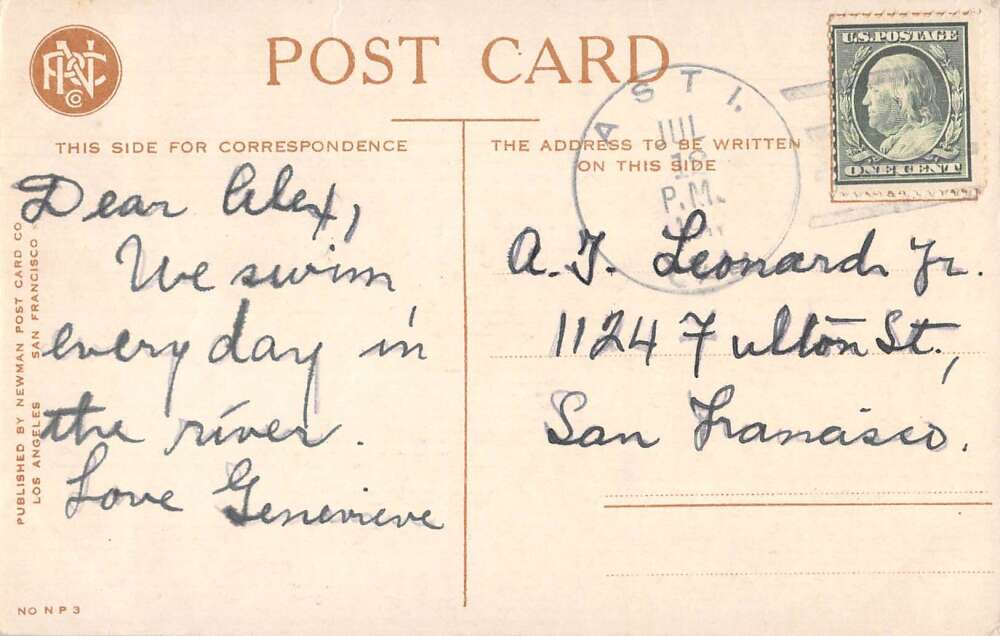 POST CARD
U.S. POSTAGE
ONE CENT
ASTI.
JUL
P.M.
THIS SIDE FOR CORRESPONDENCE
THE ADDRESS TO BE WRITTEN
ON THIS SIDE
Dear Alex,
We swim
every day in
the river.
Love Genevieve
A. J. Leonard Jr.
1124 Fulton St.,
San Francisco.
PUBLISHED BY NEWMAN POST CARD CO.
LOS ANGELES SAN FRANCISCO
NO N P 3